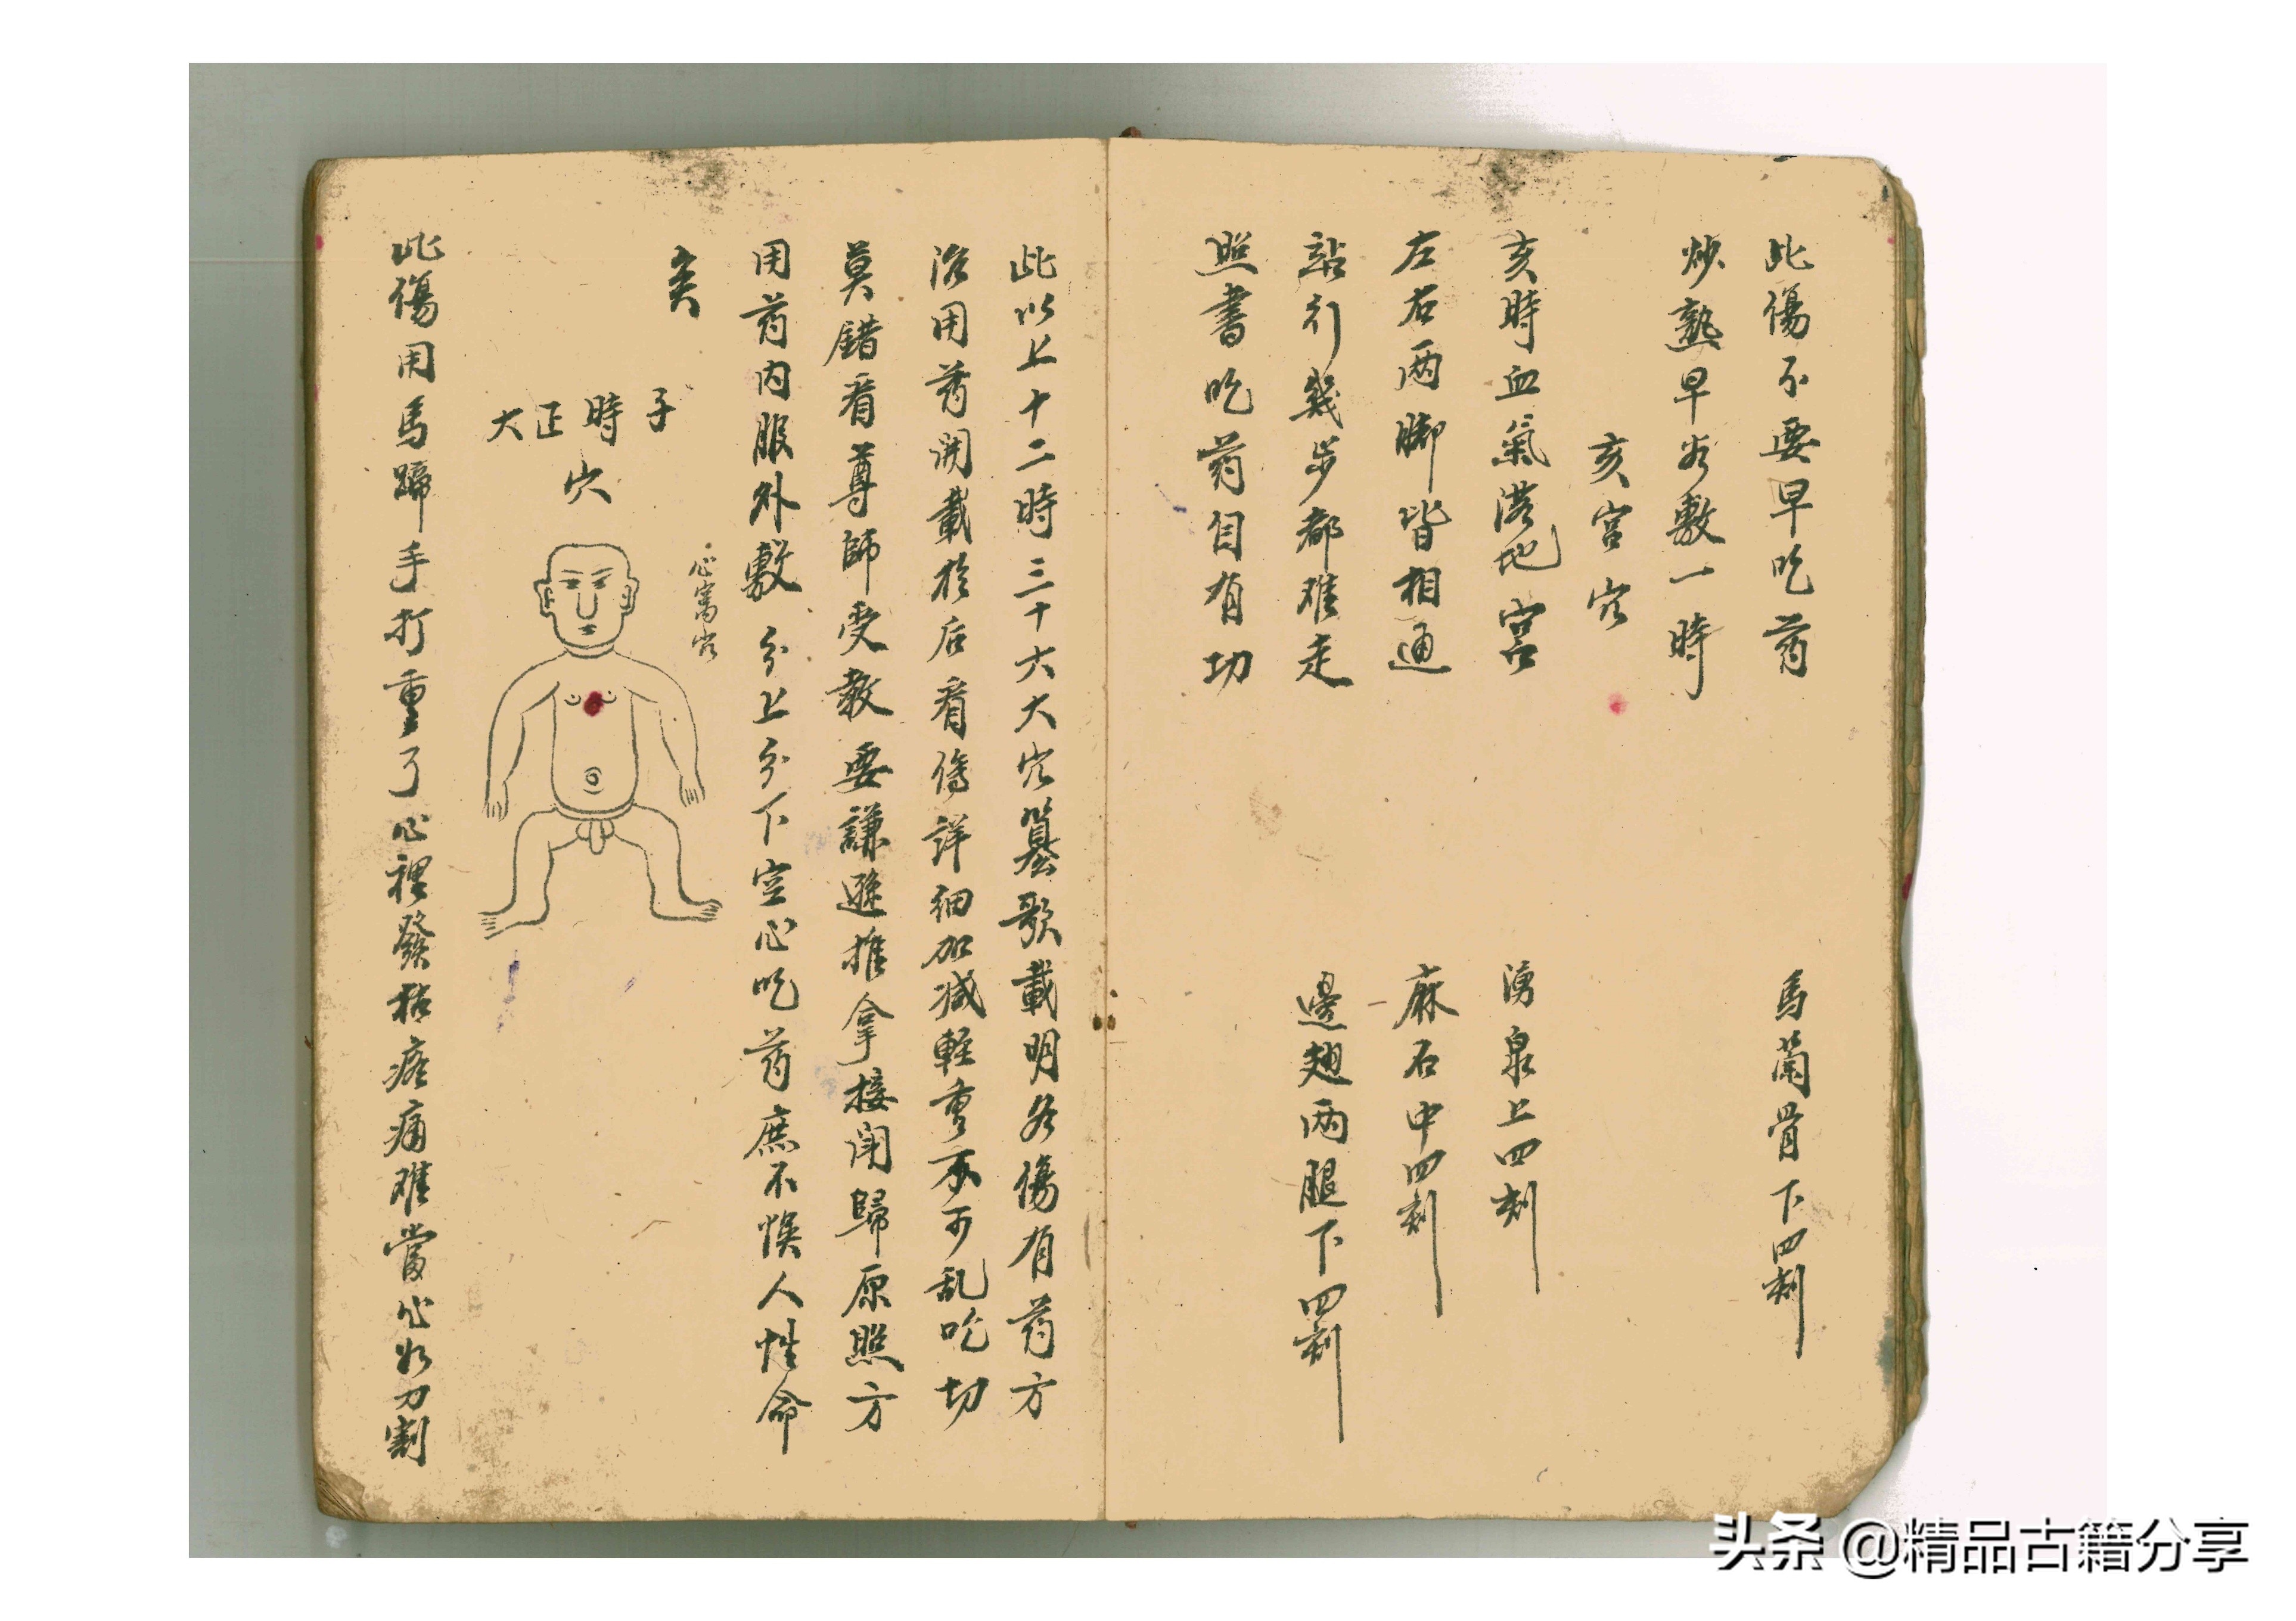 此傷不要早吃药
馬蘭骨下四刻
炒熟早谷敷一時
亥宫穴
亥時血氣湛地宫
湧泉上四刻
左右两脚皆相通
麻石中四刻
站行幾步都难走
邊翅两腿下四刻
照書吃药自有功
此以上十二時三十六大穴纂歌載明各傷有药方
治用药開載於后看傷詳細加减軽重不可乱吃切
莫錯看尊師受教要謙遜推拿接閉歸原照方
用药内服外敷分上分下空心吃药庶不悮人性命
子時正大
穴
心窩穴
此傷用馬蹄手打重了心裡發枯疼痛难當心如刀割
头条 @精品古籍分享